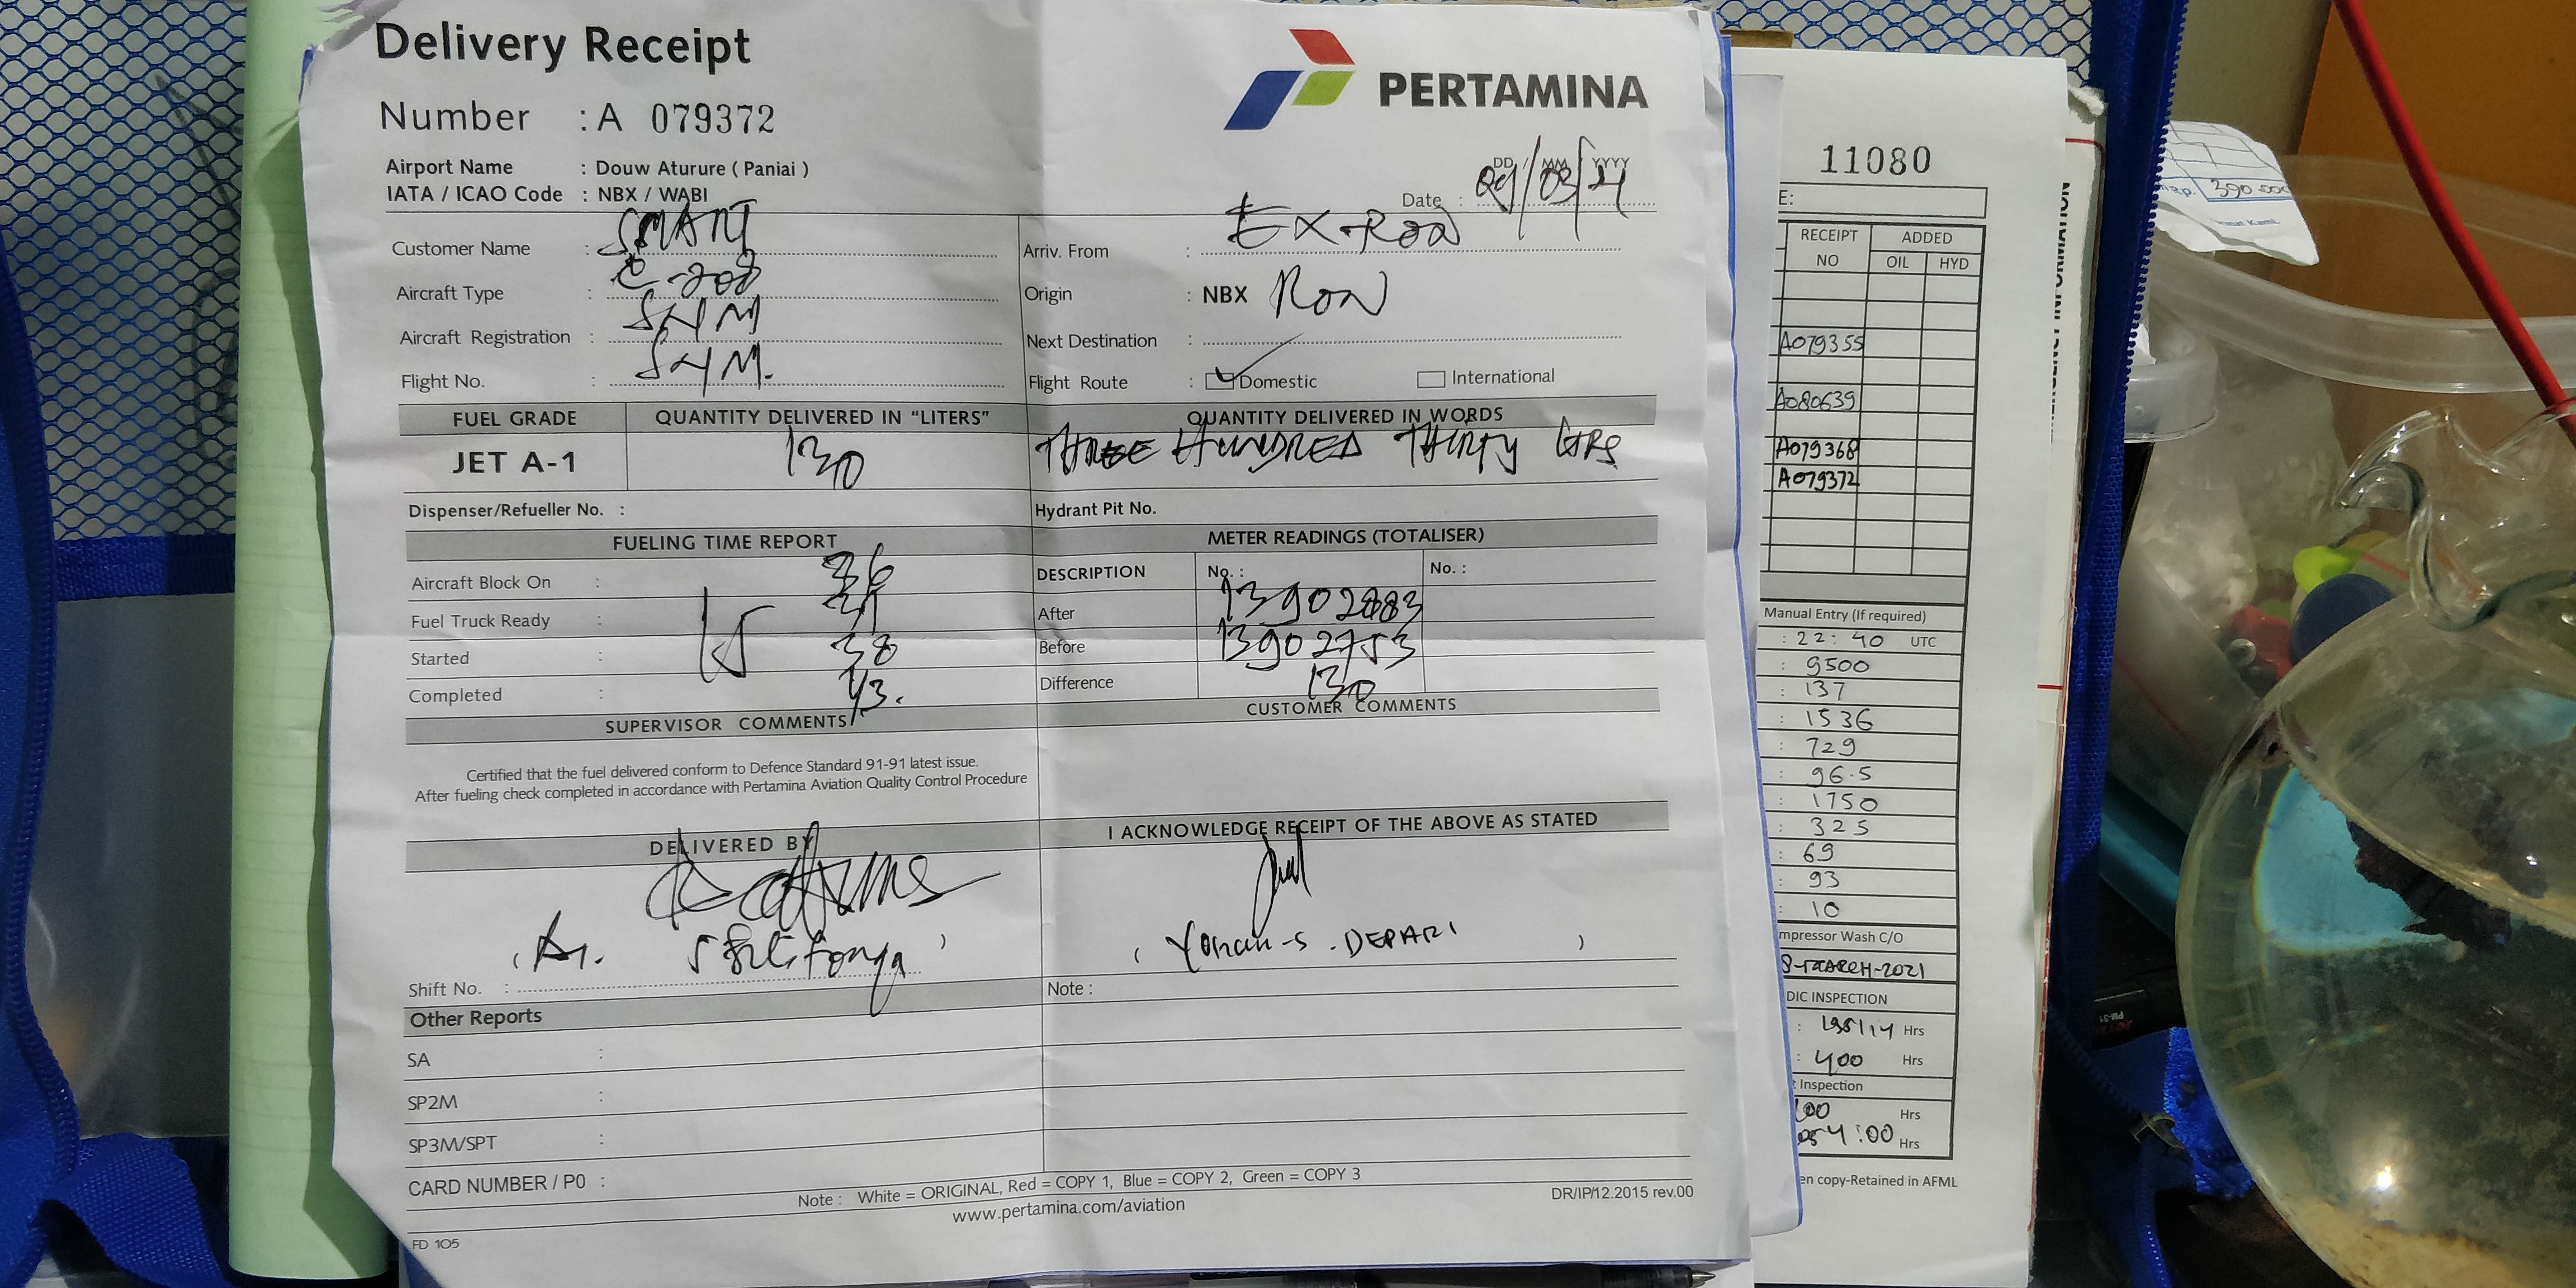 Delivery Receipt
PERTAMINA
Number : A 079372
Airport Name : Douw Aturure ( Paniai )
IATA / ICAO Code : NBX / WABI
DD / MM / YYYY
Date : 09/03/21
Customer Name : SMART
Arriv. From : EX-RON
Aircraft Type : C-208
Origin : NBX RON
Aircraft Registration : SHM
Next Destination :
Flight No. : SHM.
Flight Route : Domestic International
FUEL GRADE QUANTITY DELIVERED IN "LITERS" QUANTITY DELIVERED IN WORDS
JET A-1 130 THREE HUNDRED THIRTY LTRS
Dispenser/Refueller No. : Hydrant Pit No.
FUELING TIME REPORT METER READINGS (TOTALISER)
Aircraft Block On : 36
DESCRIPTION No. : No. :
Fuel Truck Ready :
After 13902883
Started : 38
Before 13902753
Completed : 43.
Difference 130
SUPERVISOR COMMENTS CUSTOMER COMMENTS
Certified that the fuel delivered conform to Defence Standard 91-91 latest issue.
After fueling check completed in accordance with Pertamina Aviation Quality Control Procedure
DELIVERED BY I ACKNOWLEDGE RECEIPT OF THE ABOVE AS STATED
DEPARI
Shift No. : Note :
Other Reports
SA :
SP2M :
SP3M/SPT :
CARD NUMBER / P0 :
Note : White = ORIGINAL, Red = COPY 1, Blue = COPY 2, Green = COPY 3
www.pertamina.com/aviation
DR/IP/12.2015 rev.00
FD 105
11080
E:
RECEIPT NO ADDED
OIL HYD
A079355
A080639
A079368
A079372
Manual Entry (If required)
: 22:40 UTC
: 9500
: 137
: 1536
: 729
: 96.5
: 1750
: 325
: 69
: 93
: 10
mpressor Wash C/O
8-MARCH-2021
DIC INSPECTION
Hrs
: 400 Hrs
Inspection
Hrs
4:00 Hrs
en copy-Retained in AFML
Rp. 390.000